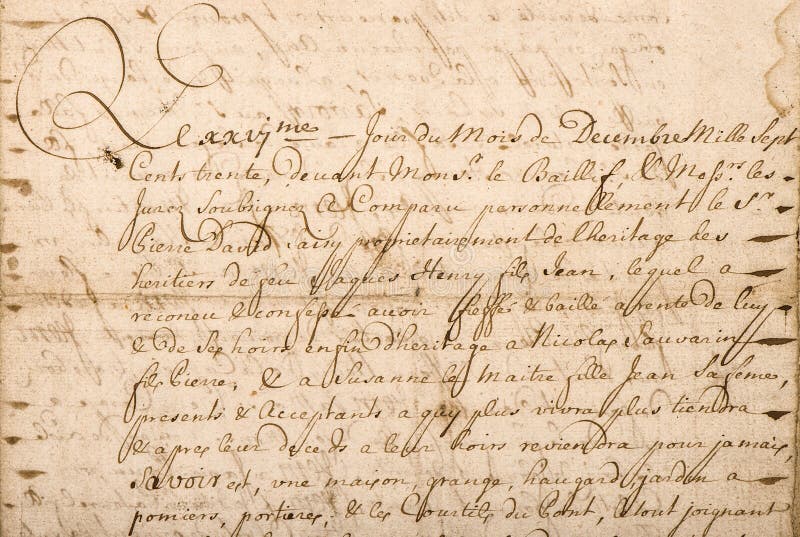 Le xxvj.me Jour du Mois de Decembre Mille Sept
Cents trente, devant Mons.r le Baillif, & Mess.rs les
Jurez Soubsignez Est Comparu personnellement le S.r
Pierre David Saisy proprietairement de l'heritage des
heritiers de feu Jaques Henry fils Jean, lequel a
reconeu & confessé avoir fieffé & baillé a rente de luy
& de Ses hoirs enfin d'heritage a Nicolas Sauvarin
fils Pierre, & a Susanne le Maitre fille Jean
presents & Acceptants a quy plus vivra plus tiendra
& apres leur deceds a leur hoirs reviendra pour jamais,
Savoir est, vne maison, grange, haugard, jardin a
pomiers, portieres, & les Courtils du Pont, le tout joignant